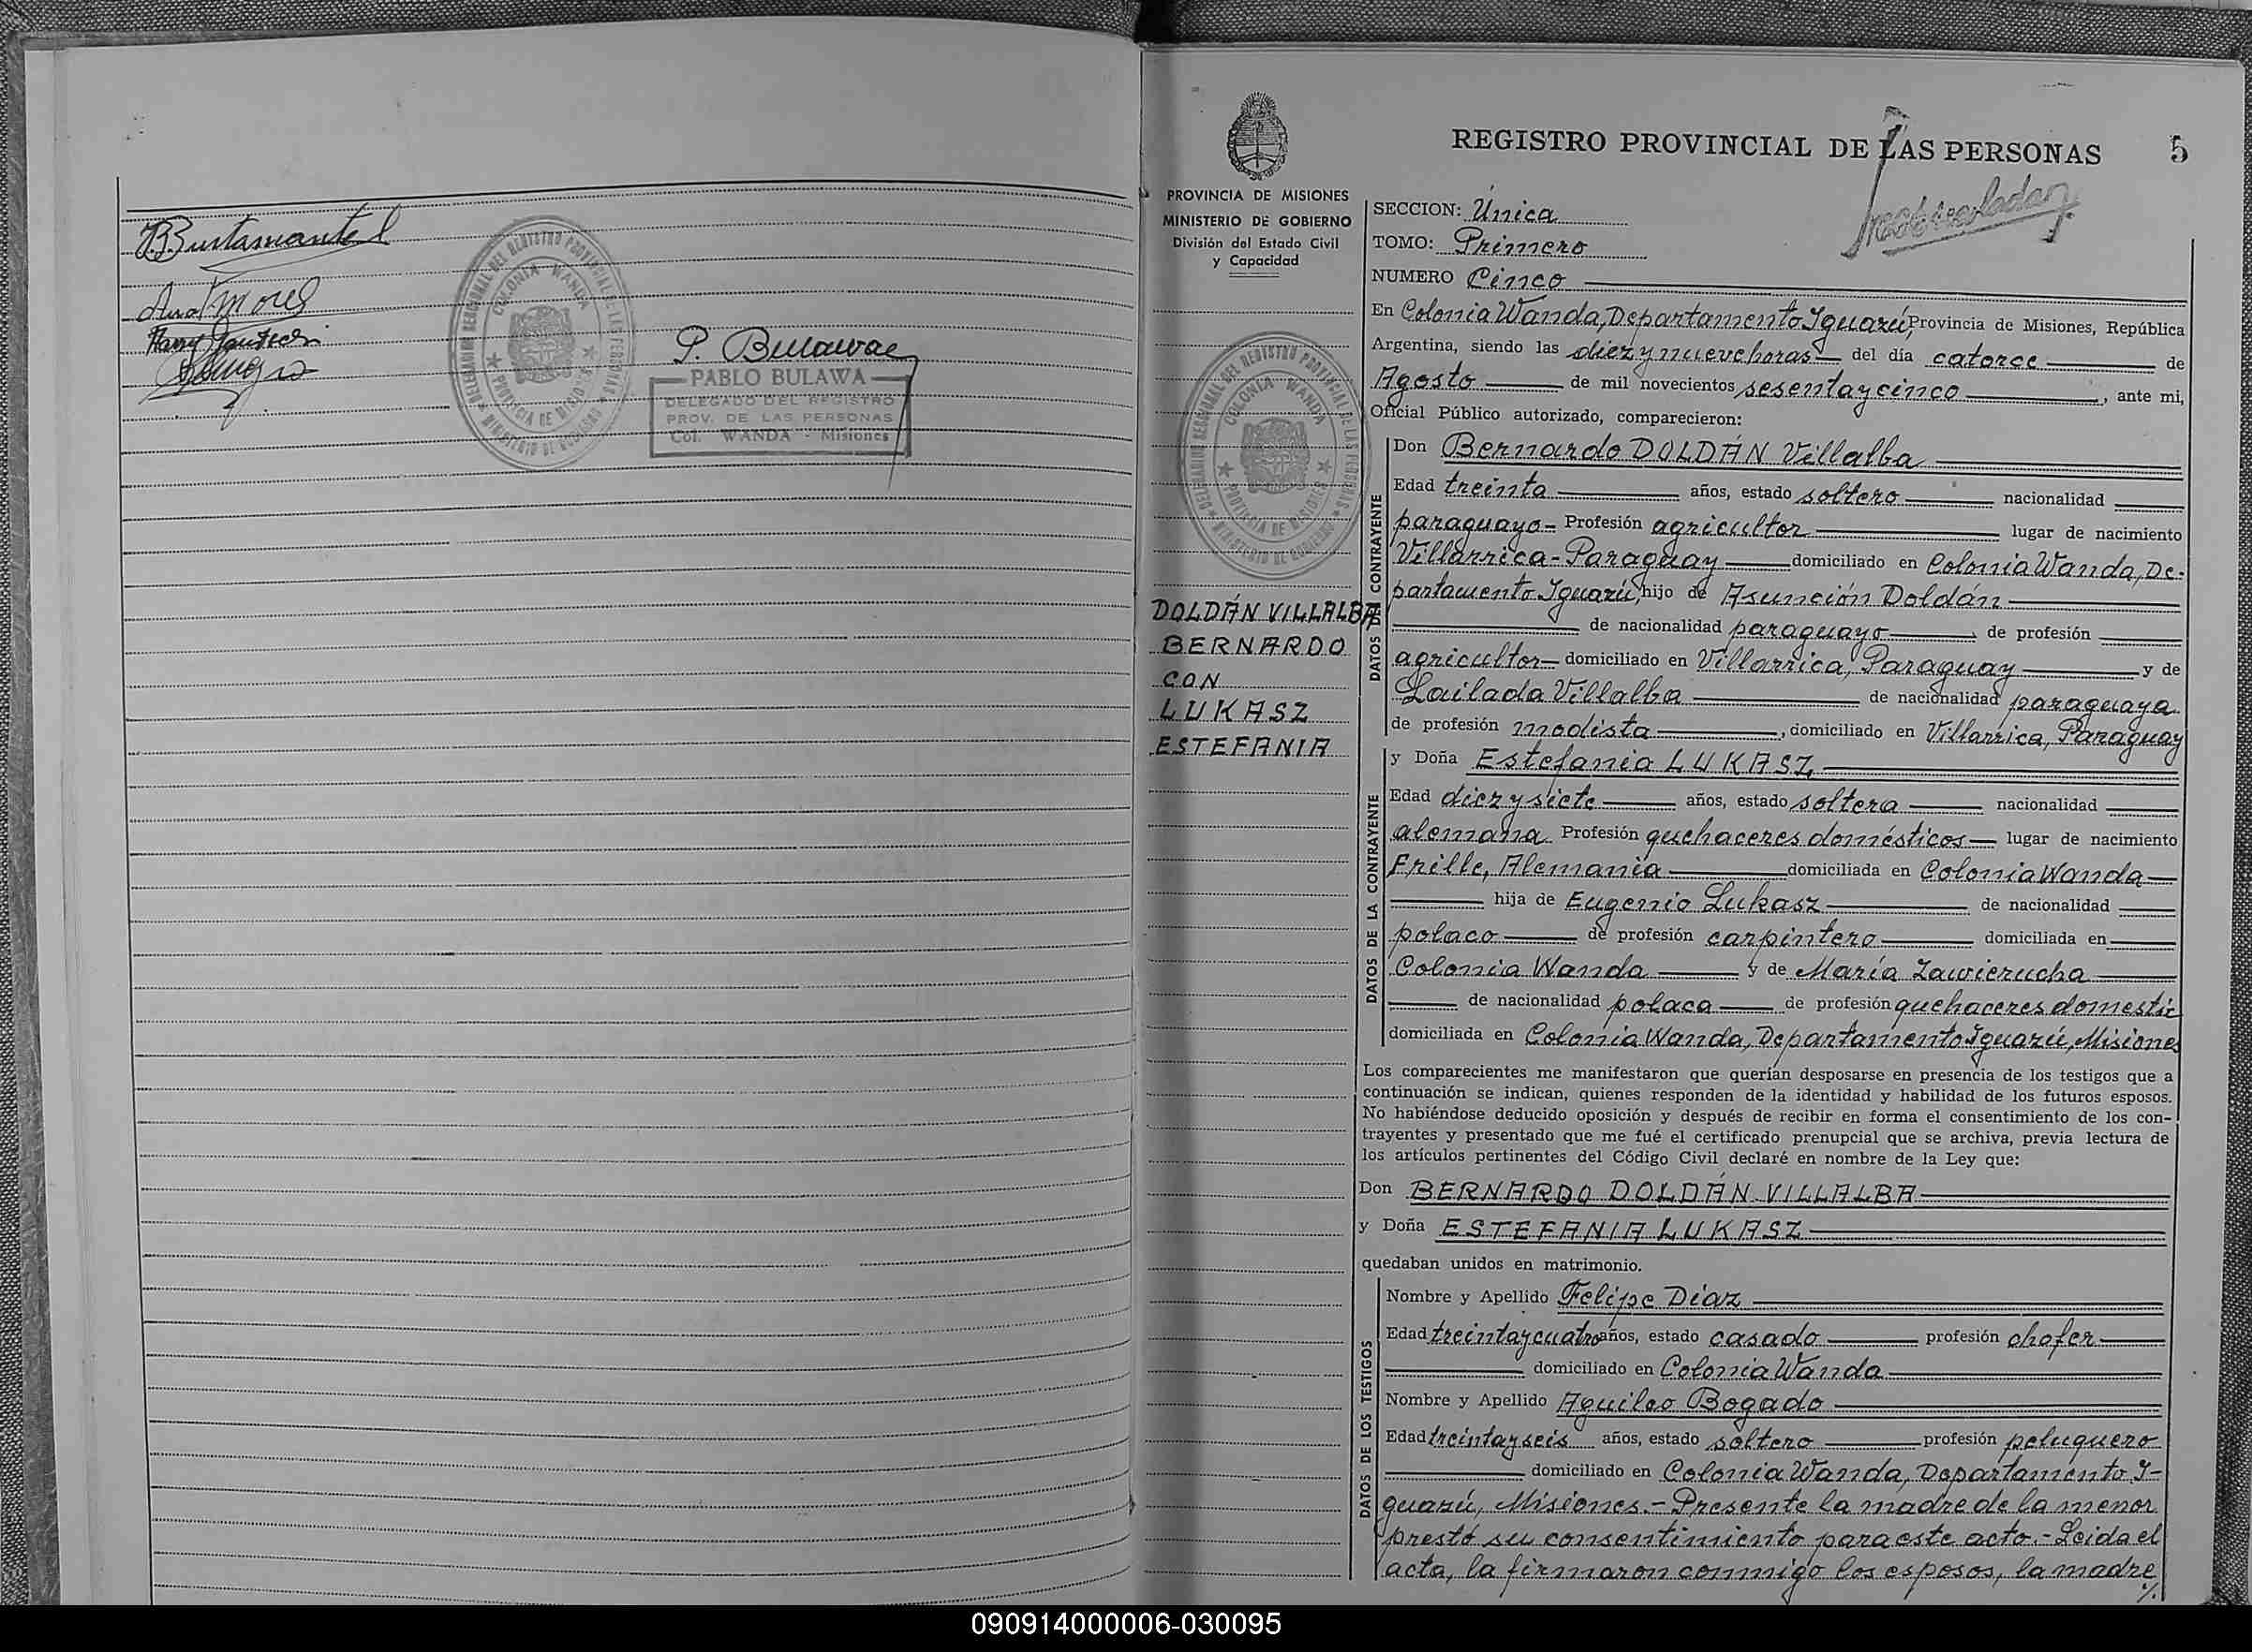 Bustamante
Ana Morel
Harry
P. Bulawa
PABLO BULAWA
DELEGADO DEL REGISTRO
PROV. DE LAS PERSONAS
Col. WANDA - Misiones
COLONIA WANDA
PROVINCIA DE MISIONES
REGISTRO PROVINCIAL DE LAS PERSONAS 5
PROVINCIA DE MISIONES
MINISTERIO DE GOBIERNO
División del Estado Civil
y Capacidad
DELEGACION REGIONAL DEL REGISTRO PROVINCIAL DE LAS PERSONAS
COLONIA WANDA
PROVINCIA DE MISIONES
MINISTERIO DE GOBIERNO
DOLDÁN VILLALBA
BERNARDO
CON
LUKASZ
ESTEFANIA
SECCION: Única
TOMO: Primero
NUMERO Cinco
En Colonia Wanda, Departamento Iguazú, Provincia de Misiones, República
Argentina, siendo las diez y nueve horas del día catorce de
Agosto de mil novecientos sesenta y cinco, ante mi,
Oficial Público autorizado, comparecieron:
DATOS DEL CONTRAYENTE
Don Bernardo DOLDÁN Villalba
Edad treinta años, estado soltero nacionalidad
paraguayo- Profesión agricultor lugar de nacimiento
Villarrica-Paraguay domiciliado en Colonia Wanda, De-
partamento Iguazú, hijo de Asunción Doldán
de nacionalidad paraguayo, de profesión
agricultor domiciliado en Villarrica, Paraguay y de
Lailada Villalba de nacionalidad paraguaya
de profesión modista, domiciliado en Villarrica, Paraguay
DATOS DE LA CONTRAYENTE
y Doña Estefania LUKASZ
Edad diez y siete años, estado soltera nacionalidad
alemana Profesión quehaceres domésticos lugar de nacimiento
Frille, Alemania domiciliada en Colonia Wanda
hija de Eugenio Lukasz de nacionalidad
polaco de profesión carpintero domiciliada en
Colonia Wanda y de María Zawierucha
de nacionalidad polaca de profesión quehaceres domestic
domiciliada en Colonia Wanda, Departamento Iguazú, Misiones
Los comparecientes me manifestaron que querían desposarse en presencia de los testigos que a
continuación se indican, quienes responden de la identidad y habilidad de los futuros esposos.
No habiéndose deducido oposición y después de recibir en forma el consentimiento de los con-
trayentes y presentado que me fué el certificado prenupcial que se archiva, previa lectura de
los artículos pertinentes del Código Civil declaré en nombre de la Ley que:
Don BERNARDO DOLDÁN VILLALBA
y Doña ESTEFANIA LUKASZ
quedaban unidos en matrimonio.
DATOS DE LOS TESTIGOS
Nombre y Apellido Felipe Diaz
Edad treinta y cuatro años, estado casado profesión chofer
domiciliado en Colonia Wanda
Nombre y Apellido Aguileo Bogado
Edad treinta y seis años, estado soltero profesión peluquero
domiciliado en Colonia Wanda, Departamento I-
guazú, Misiones.- Presente la madre de la menor
prestó su consentimiento para este acto.- Leida el
acta, la firmaron conmigo los esposos, la madre
%.
090914000006-030095